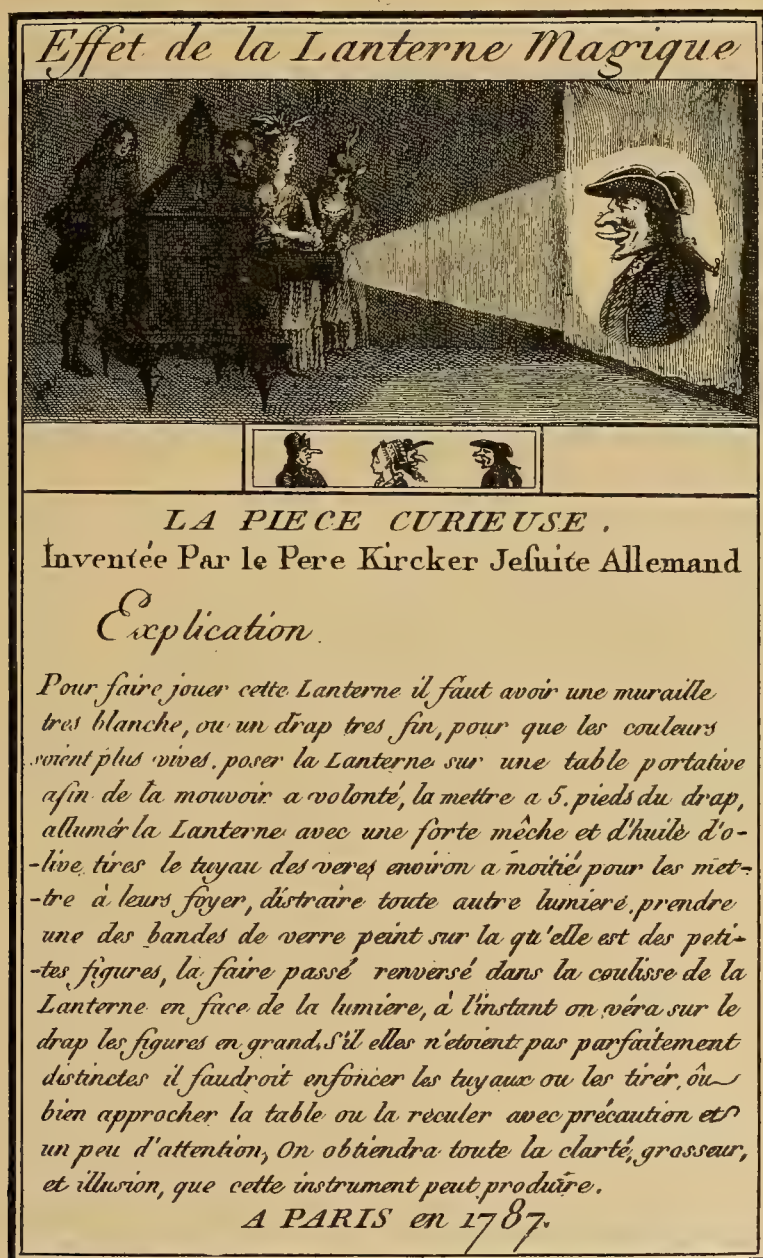 Effet de la Lanterne Magique
LA PIECE CURIEUSE.
Inventée Par le Pere Kircker Jesuite Allemand
Explication.
Pour faire jouer cette Lanterne il faut avoir une muraille
tres blanche, ou un drap tres fin, pour que les couleurs
soient plus vives. poser la Lanterne sur une table portative
afin de la mouvoir a volonté, la mettre a 5. pieds du drap,
allumér la Lanterne avec une forte mêche et d'huile d'o-
-live, tires le tuyau des veres environ a moitié pour les met-
-tre à leurs foyer, distraire toute autre lumiere. prendre
une des bandes de verre peint sur la qu'elle est des peti-
-tes figures, la faire passé renversé dans la coulisse de la
Lanterne en face de la lumiere, à l'instant on véra sur le
drap les figures en grand. S'il elles n'etoient pas parfaitement
distinctes il faudroit enfoncer les tuyaux ou les tirér, ôu
bien approcher la table ou la reculer avec précaution et
un peu d'attention, On obtiendra toute la clarté, grosseur,
et illusion, que cette instrument peut produire.
A PARIS en 1787.